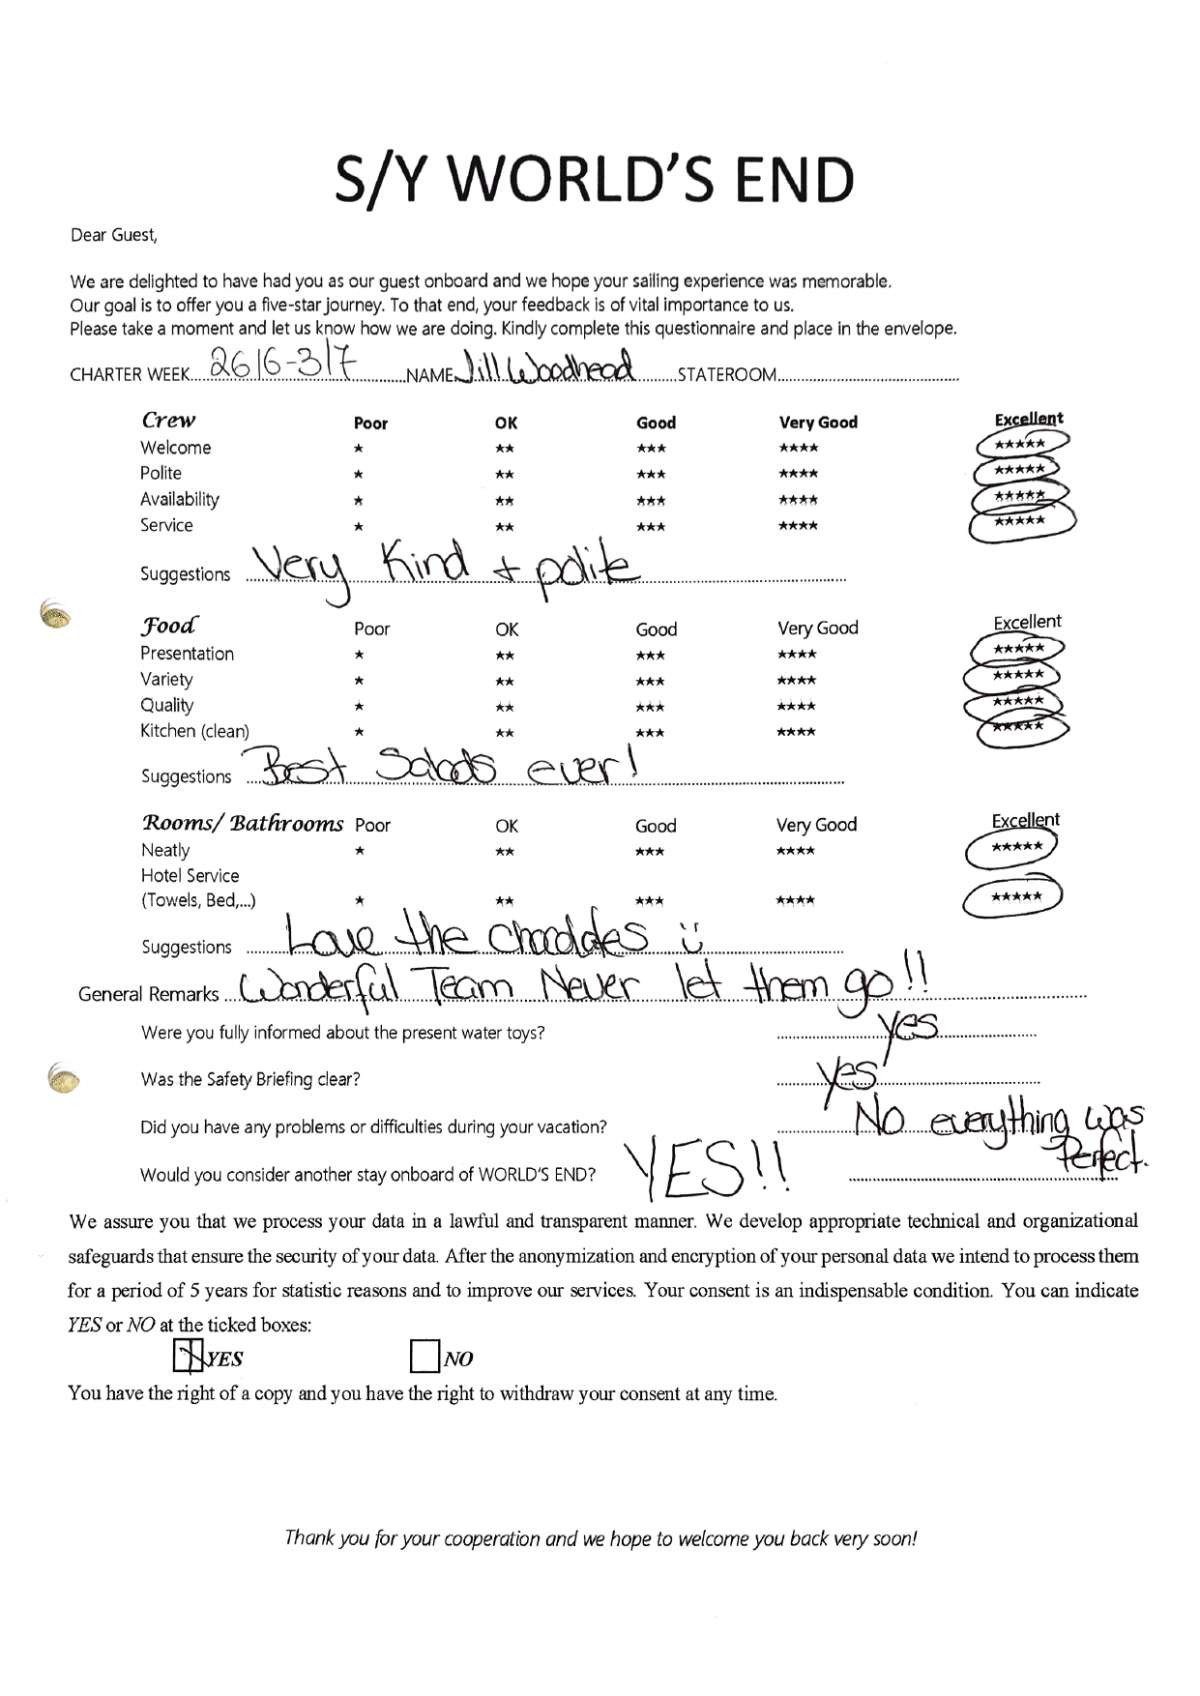 S/Y WORLD'S END
Dear Guest,
We are delighted to have had you as our guest onboard and we hope your sailing experience was memorable.
Our goal is to offer you a five-star journey. To that end, your feedback is of vital importance to us.
Please take a moment and let us know how we are doing. Kindly complete this questionnaire and place in the envelope.
CHARTER WEEK 26/6-3/7 NAME Jill Woodhead STATEROOM
Crew Poor OK Good Very Good Excellent
Welcome ★ ★★ ★★★ ★★★★ ★★★★★
Polite ★ ★★ ★★★ ★★★★ ★★★★★
Availability ★ ★★ ★★★ ★★★★ ★★★★★
Service ★ ★★ ★★★ ★★★★ ★★★★★
Suggestions Very Kind + polite
Food Poor OK Good Very Good Excellent
Presentation ★ ★★ ★★★ ★★★★ ★★★★★
Variety ★ ★★ ★★★ ★★★★ ★★★★★
Quality ★ ★★ ★★★ ★★★★ ★★★★★
Kitchen (clean) ★ ★★ ★★★ ★★★★ ★★★★★
Suggestions Best Salads ever!
Rooms/ Bathrooms Poor OK Good Very Good Excellent
Neatly ★ ★★ ★★★ ★★★★ ★★★★★
Hotel Service
(Towels, Bed,...) ★ ★★ ★★★ ★★★★ ★★★★★
Suggestions Love the chocolates ü
General Remarks Wonderful Team Never let them go!!
Were you fully informed about the present water toys? yes
Was the Safety Briefing clear? yes
Did you have any problems or difficulties during your vacation? No everything was
Perfect.
Would you consider another stay onboard of WORLD'S END? YES!!
We assure you that we process your data in a lawful and transparent manner. We develop appropriate technical and organizational
safeguards that ensure the security of your data. After the anonymization and encryption of your personal data we intend to process them
for a period of 5 years for statistic reasons and to improve our services. Your consent is an indispensable condition. You can indicate
YES or NO at the ticked boxes:
YES NO
You have the right of a copy and you have the right to withdraw your consent at any time.
Thank you for your cooperation and we hope to welcome you back very soon!